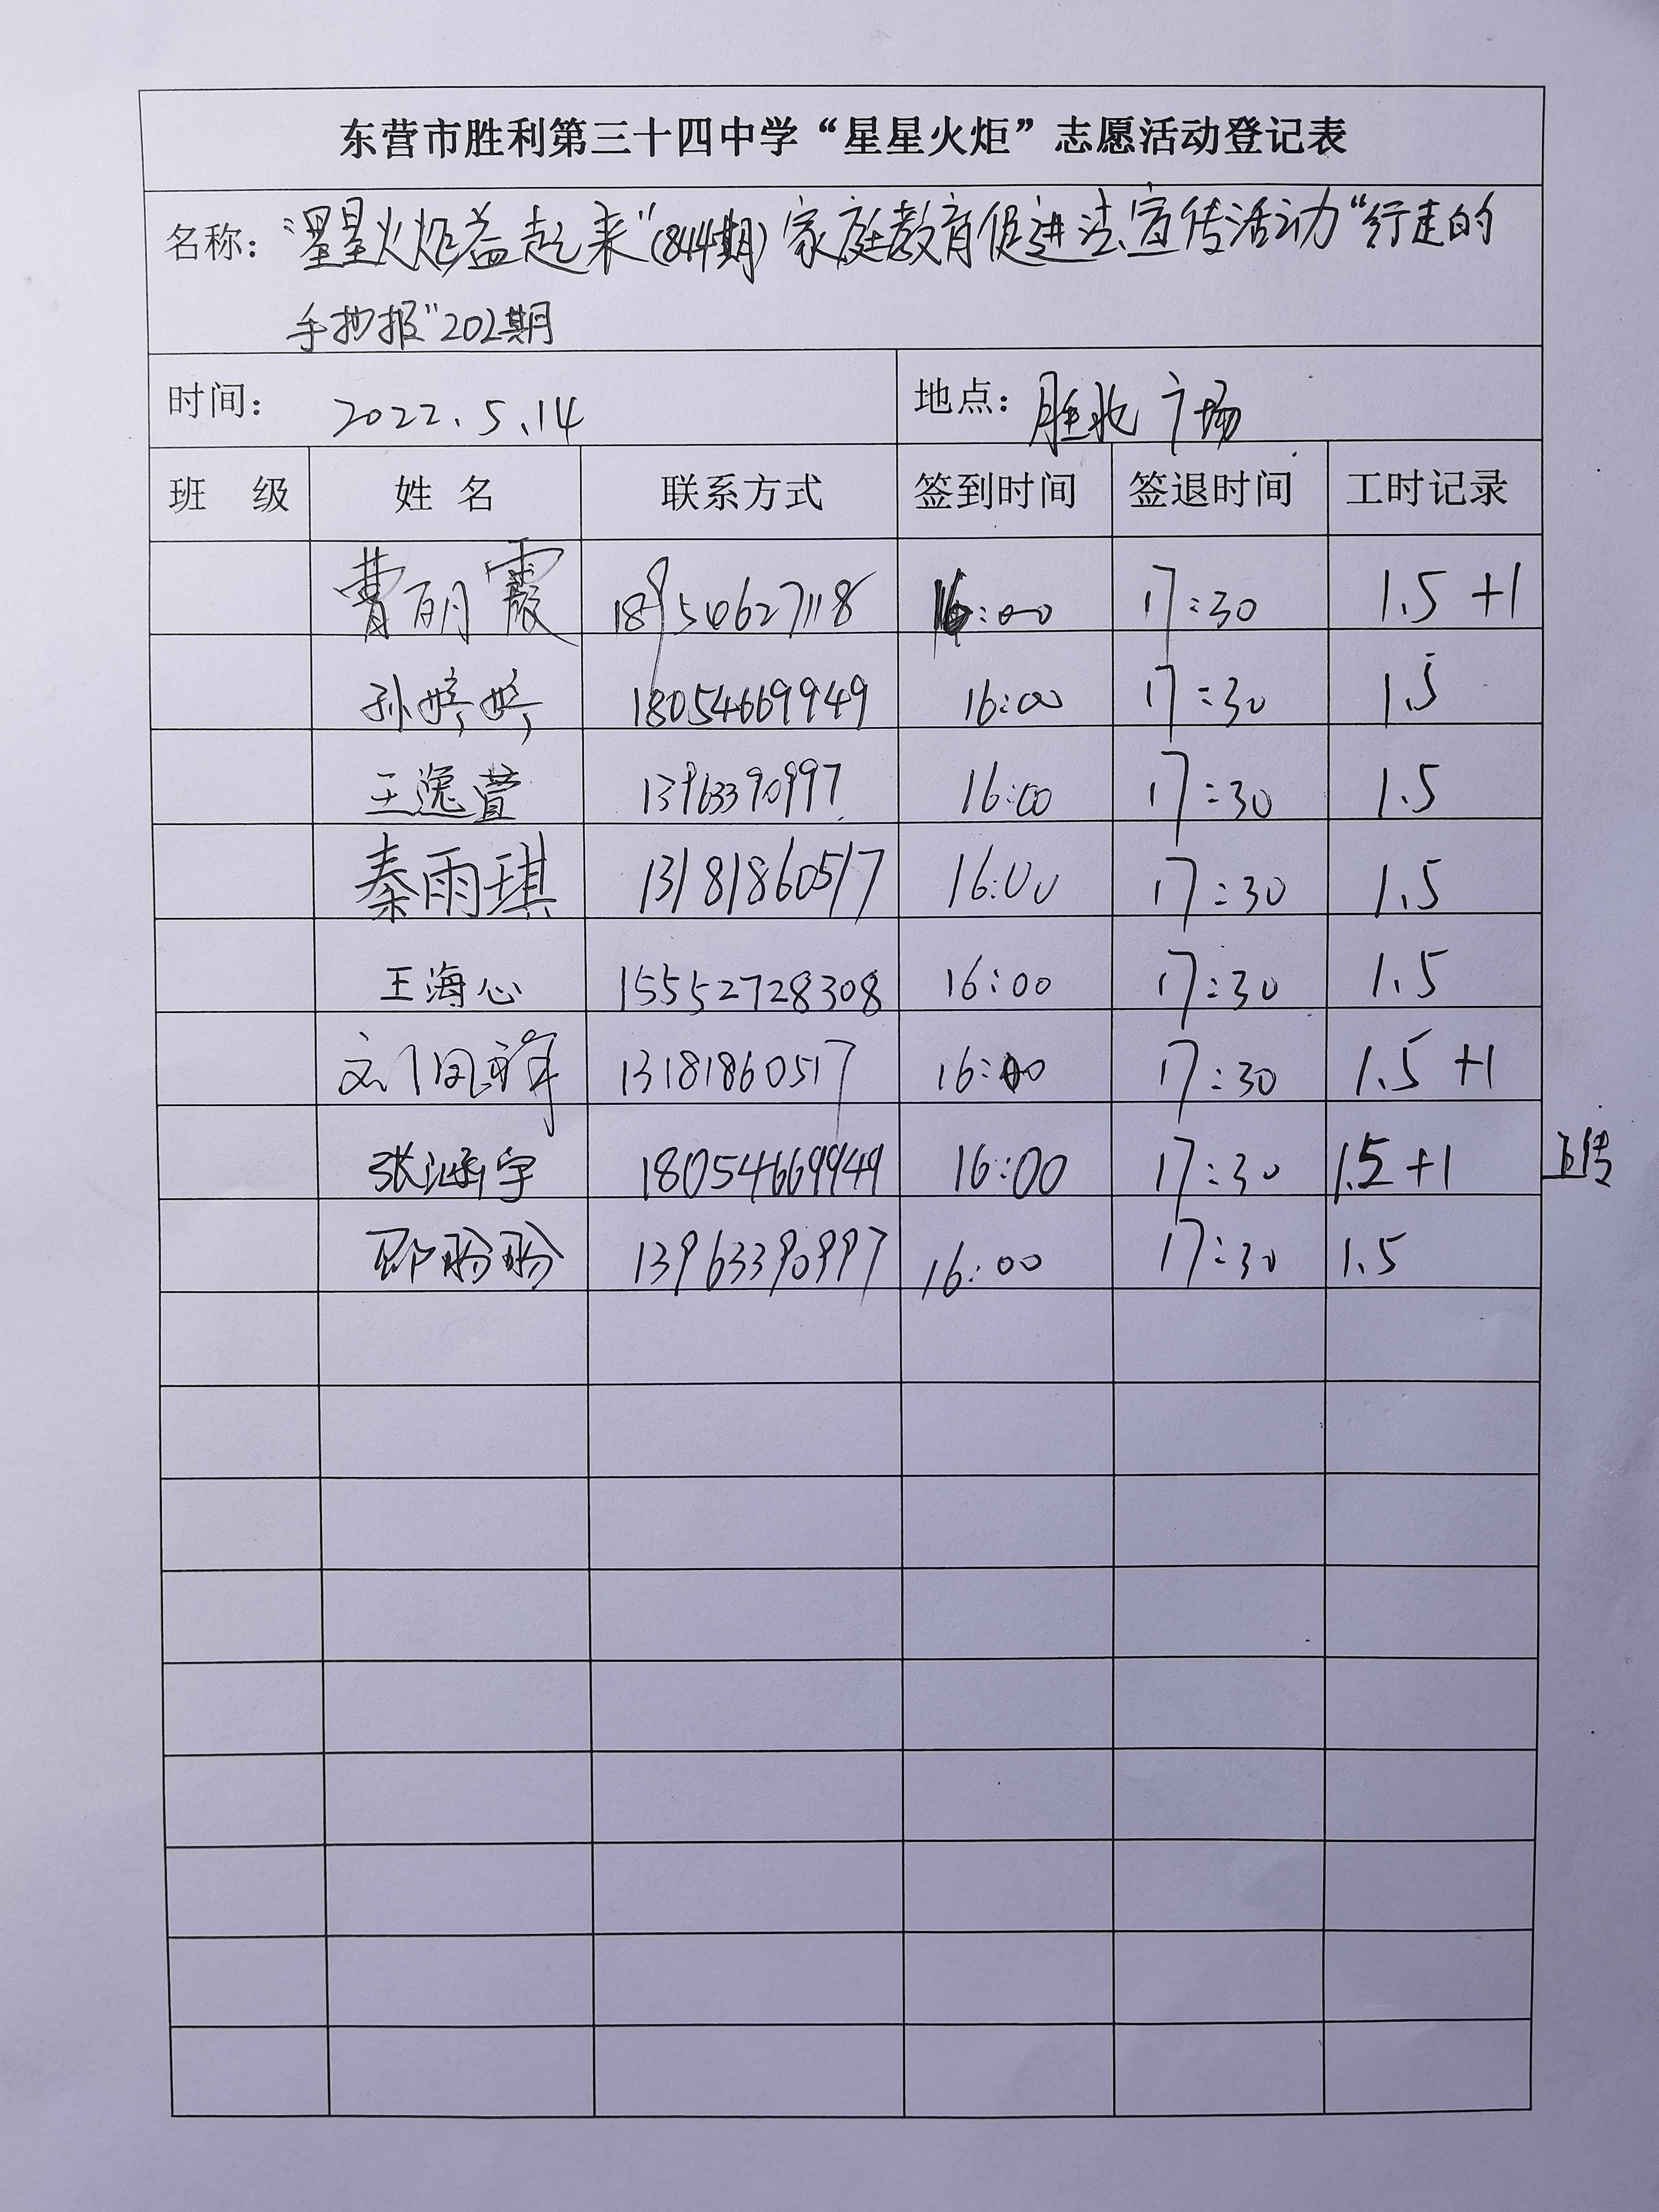 东营市胜利第三十四中学“星星火炬”志愿活动登记表
名称：“星星火炬益起来”(844期)家庭教育促进法宣传活动“行走的
手抄报”202期
时间： 2022.5.14 地点： 胜北广场
班 级 姓 名 联系方式 签到时间 签退时间 工时记录
曹明霞 18954627118 16:00 17:30 1.5+1
孙婷婷 18054669949 16:00 17:30 1.5
王逸萱 13963390997 16:00 17:30 1.5
秦雨琪 13181860517 16:00 17:30 1.5
王海心 15552728308 16:00 17:30 1.5
刘凤祥 13181860517 16:00 17:30 1.5+1
张涵宇 18054669949 16:00 17:30 1.5+1 上传
盼盼 13963390997 16:00 17:30 1.5